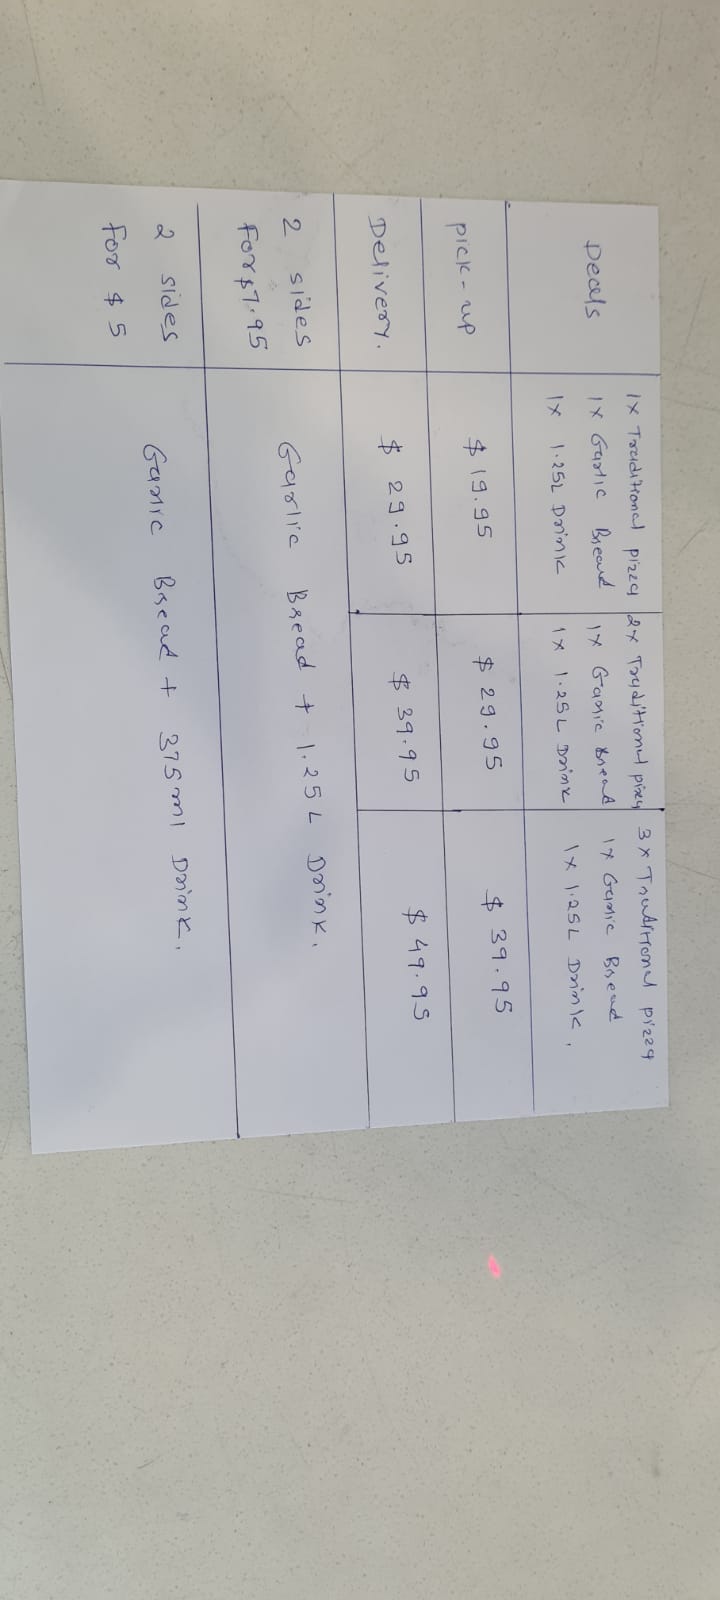 Deals
1x Traditional pizza
1x Garlic Bread
1x 1.25L Drink
2x Traditional pizza
1x Garlic Bread
1x 1.25L Drink
3x Traditional pizza
1x Garlic Bread
1x 1.25L Drink.
Pick-up
$19.95
$29.95
$39.95
Delivery.
$29.95
$39.95
$49.95
2 sides
For $7.95
Garlic Bread + 1.25L Drink.
2 sides
For $5
Garlic Bread + 375ml Drink.